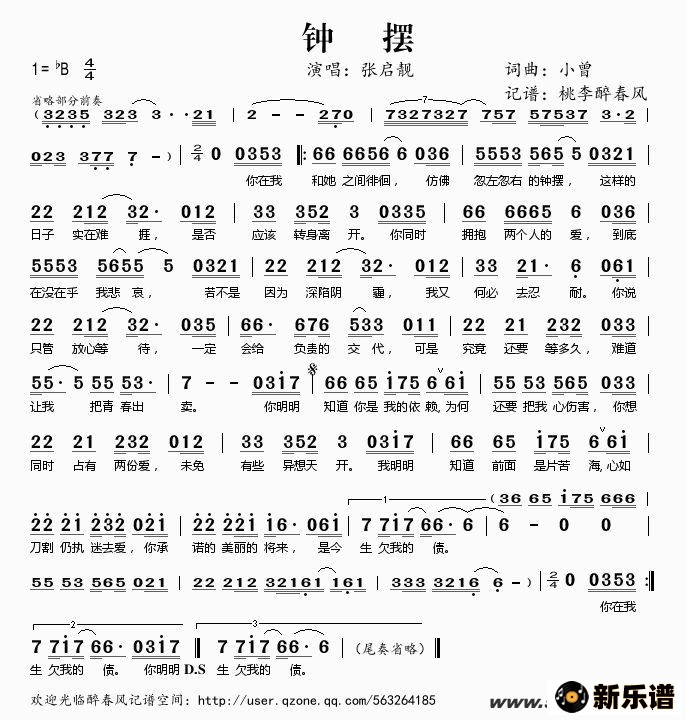 钟 摆
1= ♭B 4/4 演唱：张启靓 词曲：小曾
省略部分前奏 记谱：桃李醉春风
( 3235 323 3· ·21 | 2 - - 270 | 7 7327327 757 57537 3·2 |
023 377 7 - ) | 2/4 0 0353 |: 66 6656 6 036 | 5553 565 5 0321 |
你在我 和她 之间徘徊， 仿佛 忽左忽右 的钟摆， 这样的
22 212 32· 012 | 33 352 3 0335 | 66 6665 6 036 |
日子 实在难 捱， 是否 应该 转身离 开。 你同时 拥抱 两个人的 爱， 到底
5553 5655 5 0321 | 22 212 32· 012 | 33 21· 6 061 |
在没在乎 我悲 哀， 若不是 因为 深陷阴 霾， 我又 何必 去忍 耐。 你说
22 212 32· 035 | 66· 676 533 011 | 22 21 232 033 |
只管 放心等 待， 一定 会给 负责的 交 代， 可是 究竟 还要 等多久， 难道
55· 5 55 53· | 7 - - 0317 | 66 65 175 6 61 | 55 53 565 033 |
让我 把青 春出 卖。 你明明 知道 你是 我的依 赖，为何 还要 把我 心伤害， 你想
22 21 232 012 | 33 352 3 0317 | 66 65 175 6 61 |
同时 占有 两份爱， 未免 有些 异想天 开。 我明明 知道 前面 是片苦 海，心如
1 (36 65 175 666
22 21 232 021 | 22 221 16· 061 | 7 717 66· 6 | 6 - 0 0 |
刀割 仍执 迷去爱， 你承 诺的 美丽的 将来， 是今 生 欠我的 债。
55 53 565 021 | 22 212 32161 161 | 333 33216 6 - ) | 2/4 0 0353 :|
你在我
2 3
7 717 66· 0317 || 7 717 66· 6 (尾奏省略) ||
生 欠我的 债。 你明明 D.S 生 欠我的 债。
欢迎光临醉春风记谱空间：http://user.qzone.qq.com/563264185 www. 新乐谱